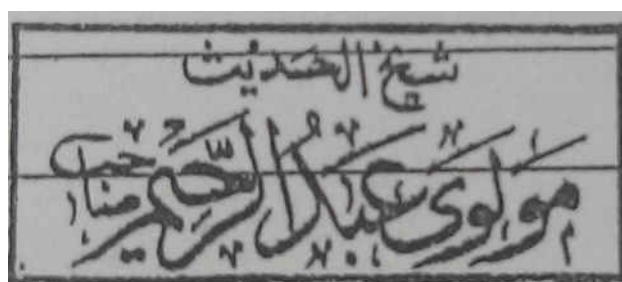 شیخ الحدیث
مولوی عبدالرحیم صاحب